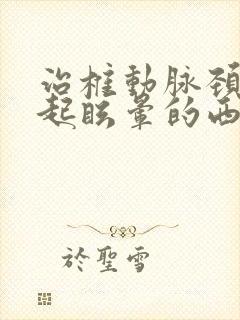 治椎動脉頚
起眩暈的西
於聖雪